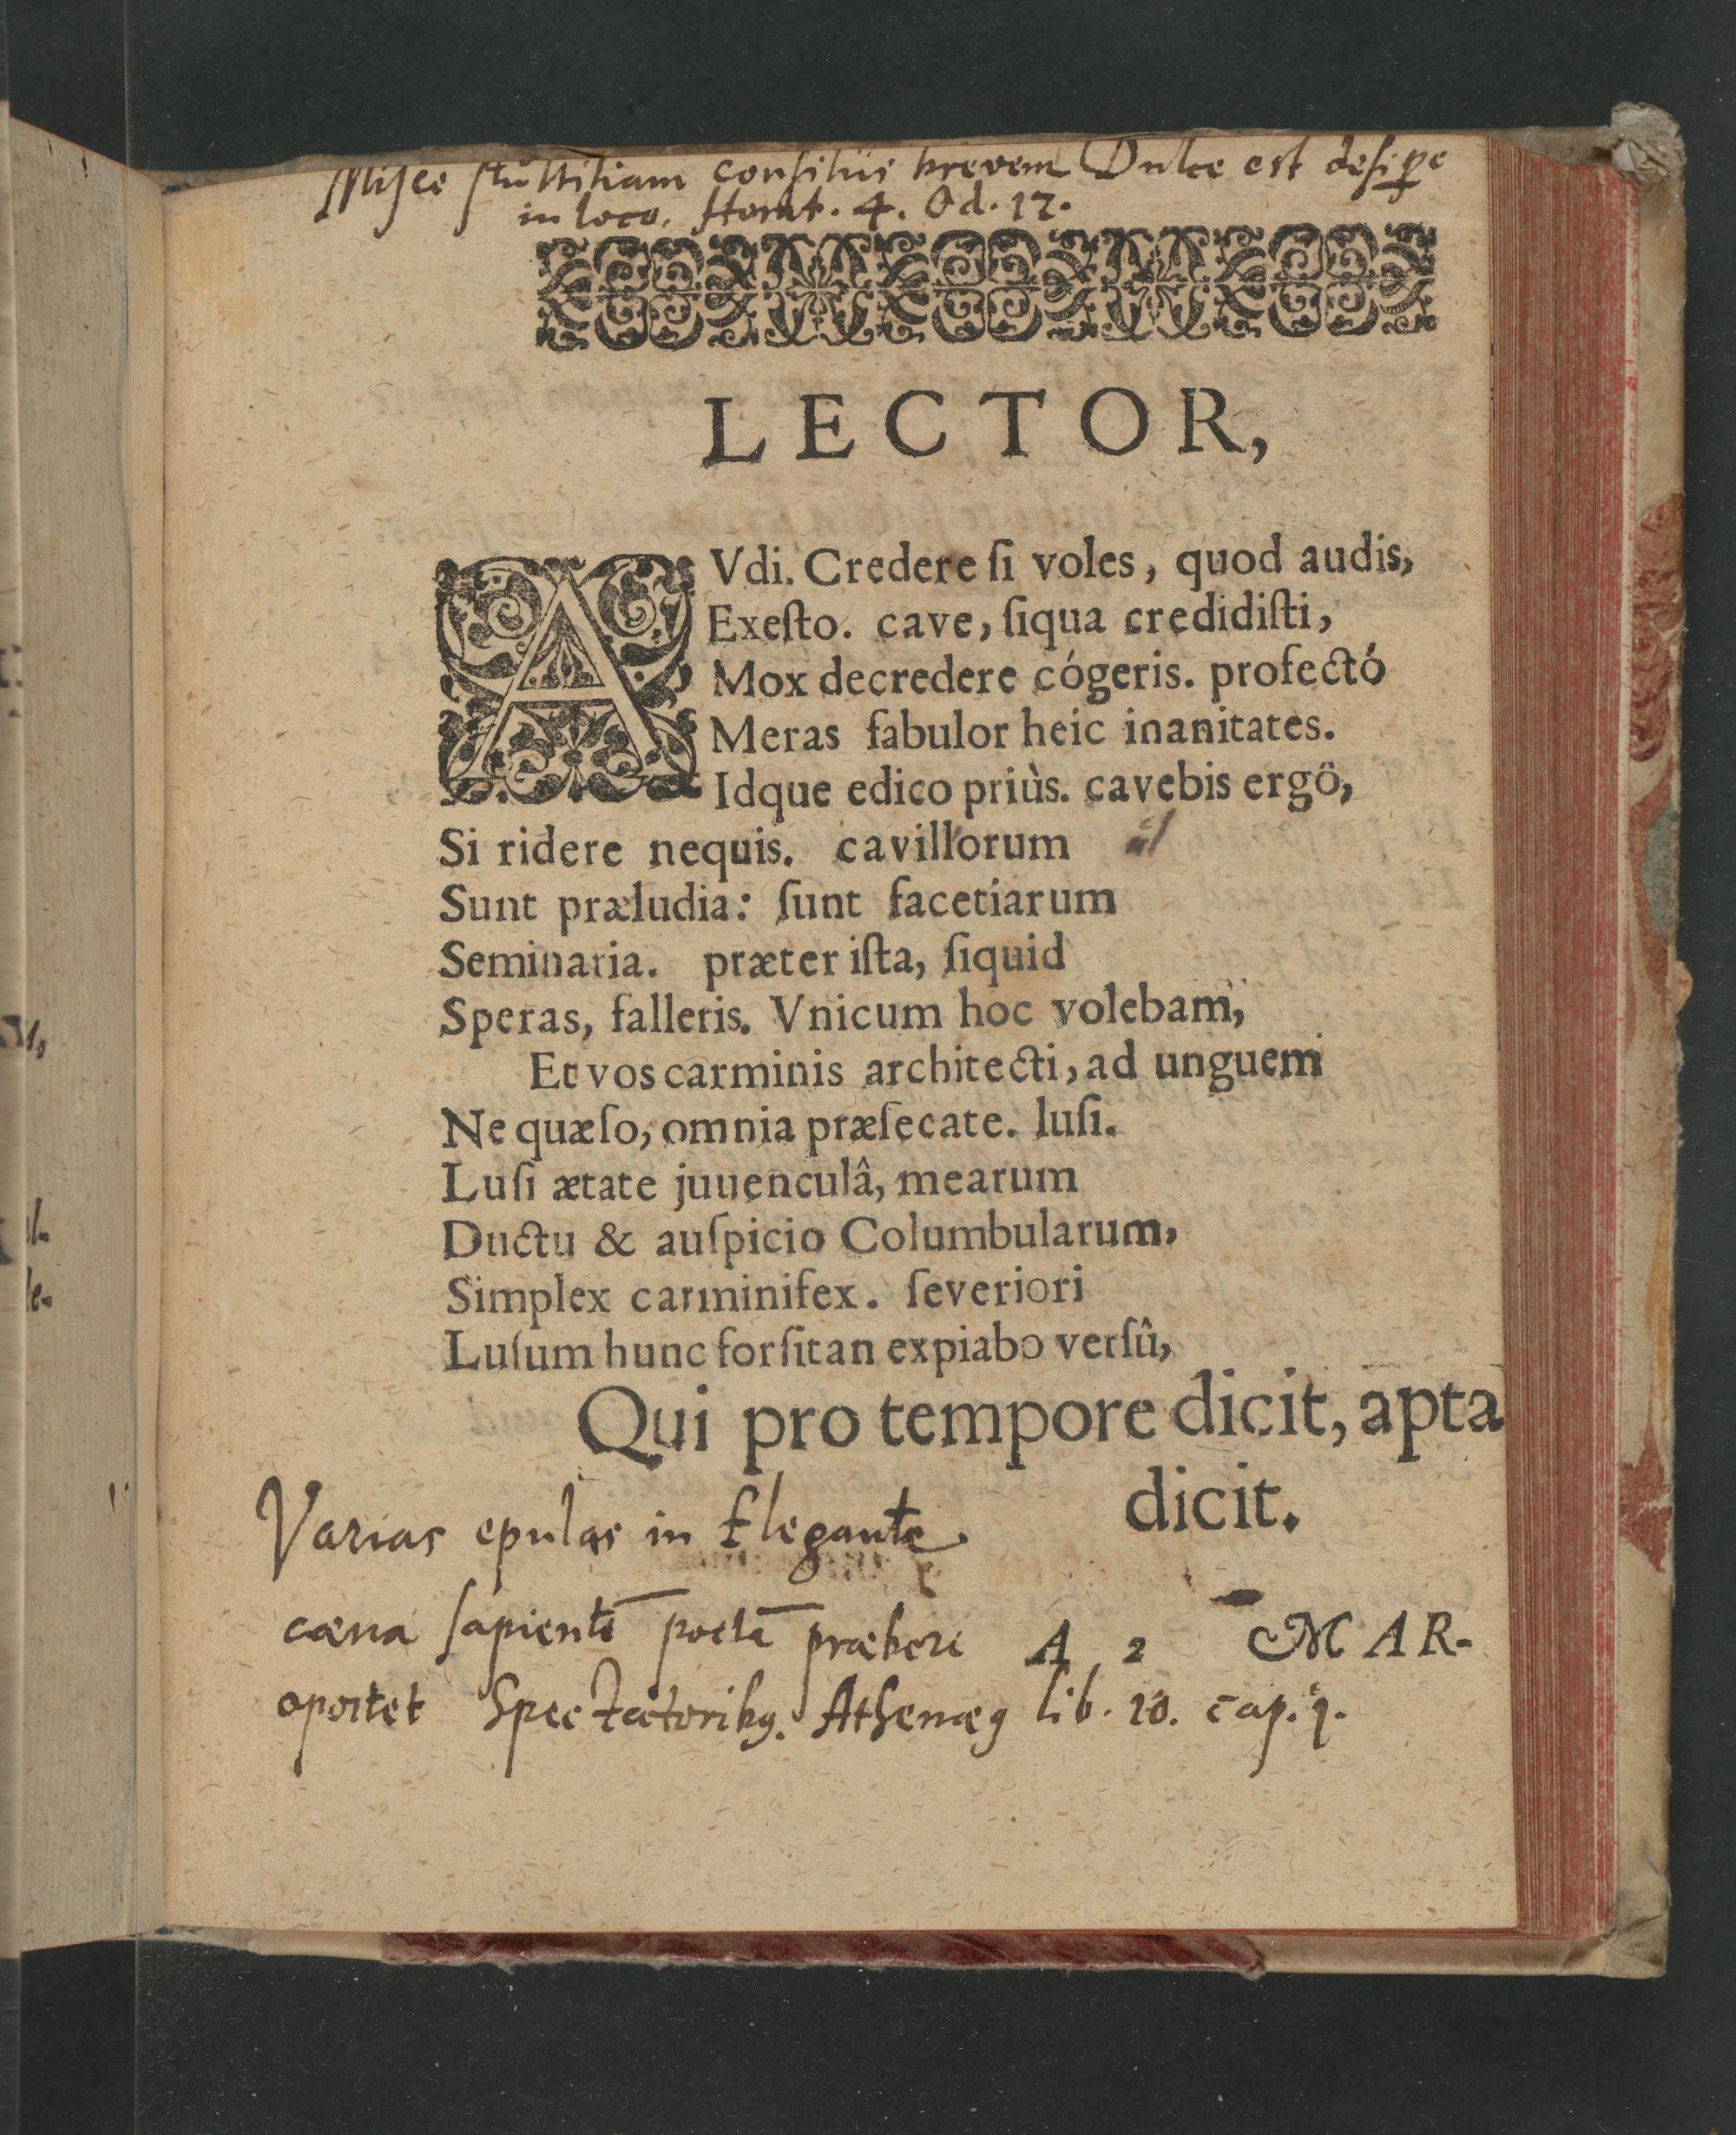 Misce stultitiam consiliis brevem Dulce est desiꝑe
in loco. Horat. 4. Od. 12.
LECTOR,
AVdi. Credere ſi voles, quod audis,
Exeſto. cave, ſiqua credidiſti,
Mox decredere cógeris. profectó
Meras fabulor heic inanitates.
Idque edico priùs. cavebis ergö,
Si ridere nequis. cavillorum
Sunt præludia: ſunt facetiarum
Seminaria. præter iſta, ſiquid
Speras, falleris. Vnicum hoc volebam,
Et vos carminis architecti, ad unguem
Ne quæſo, omnia præſecate. luſi.
Luſi ætate juuenculâ, mearum
Ductu & auſpicio Columbularum,
Simplex carminifex. ſeveriori
Luſum hunc forſitan expiabo verſû,
Qui pro tempore dicit, apta
dicit.
Varias epulas in Elegante
cæna sapientē poetā præbere
A 2 MAR-
oportet Spectatoribꝫ. Athenæꝰ lib. 10. cap. 1.